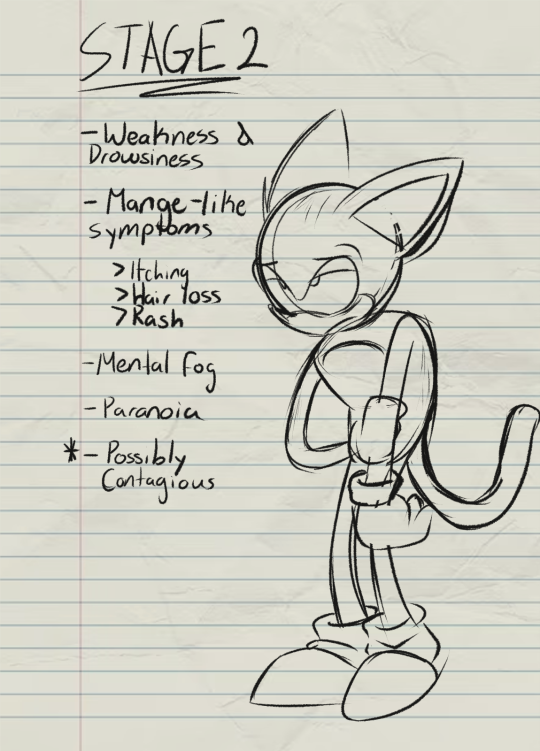 STAGE 2
- Weakness &
Drowsiness
- Mange-like
symptoms
> Itching
> Hair loss
> Rash
- Mental fog
- Paranoia
* - Possibly
Contagious